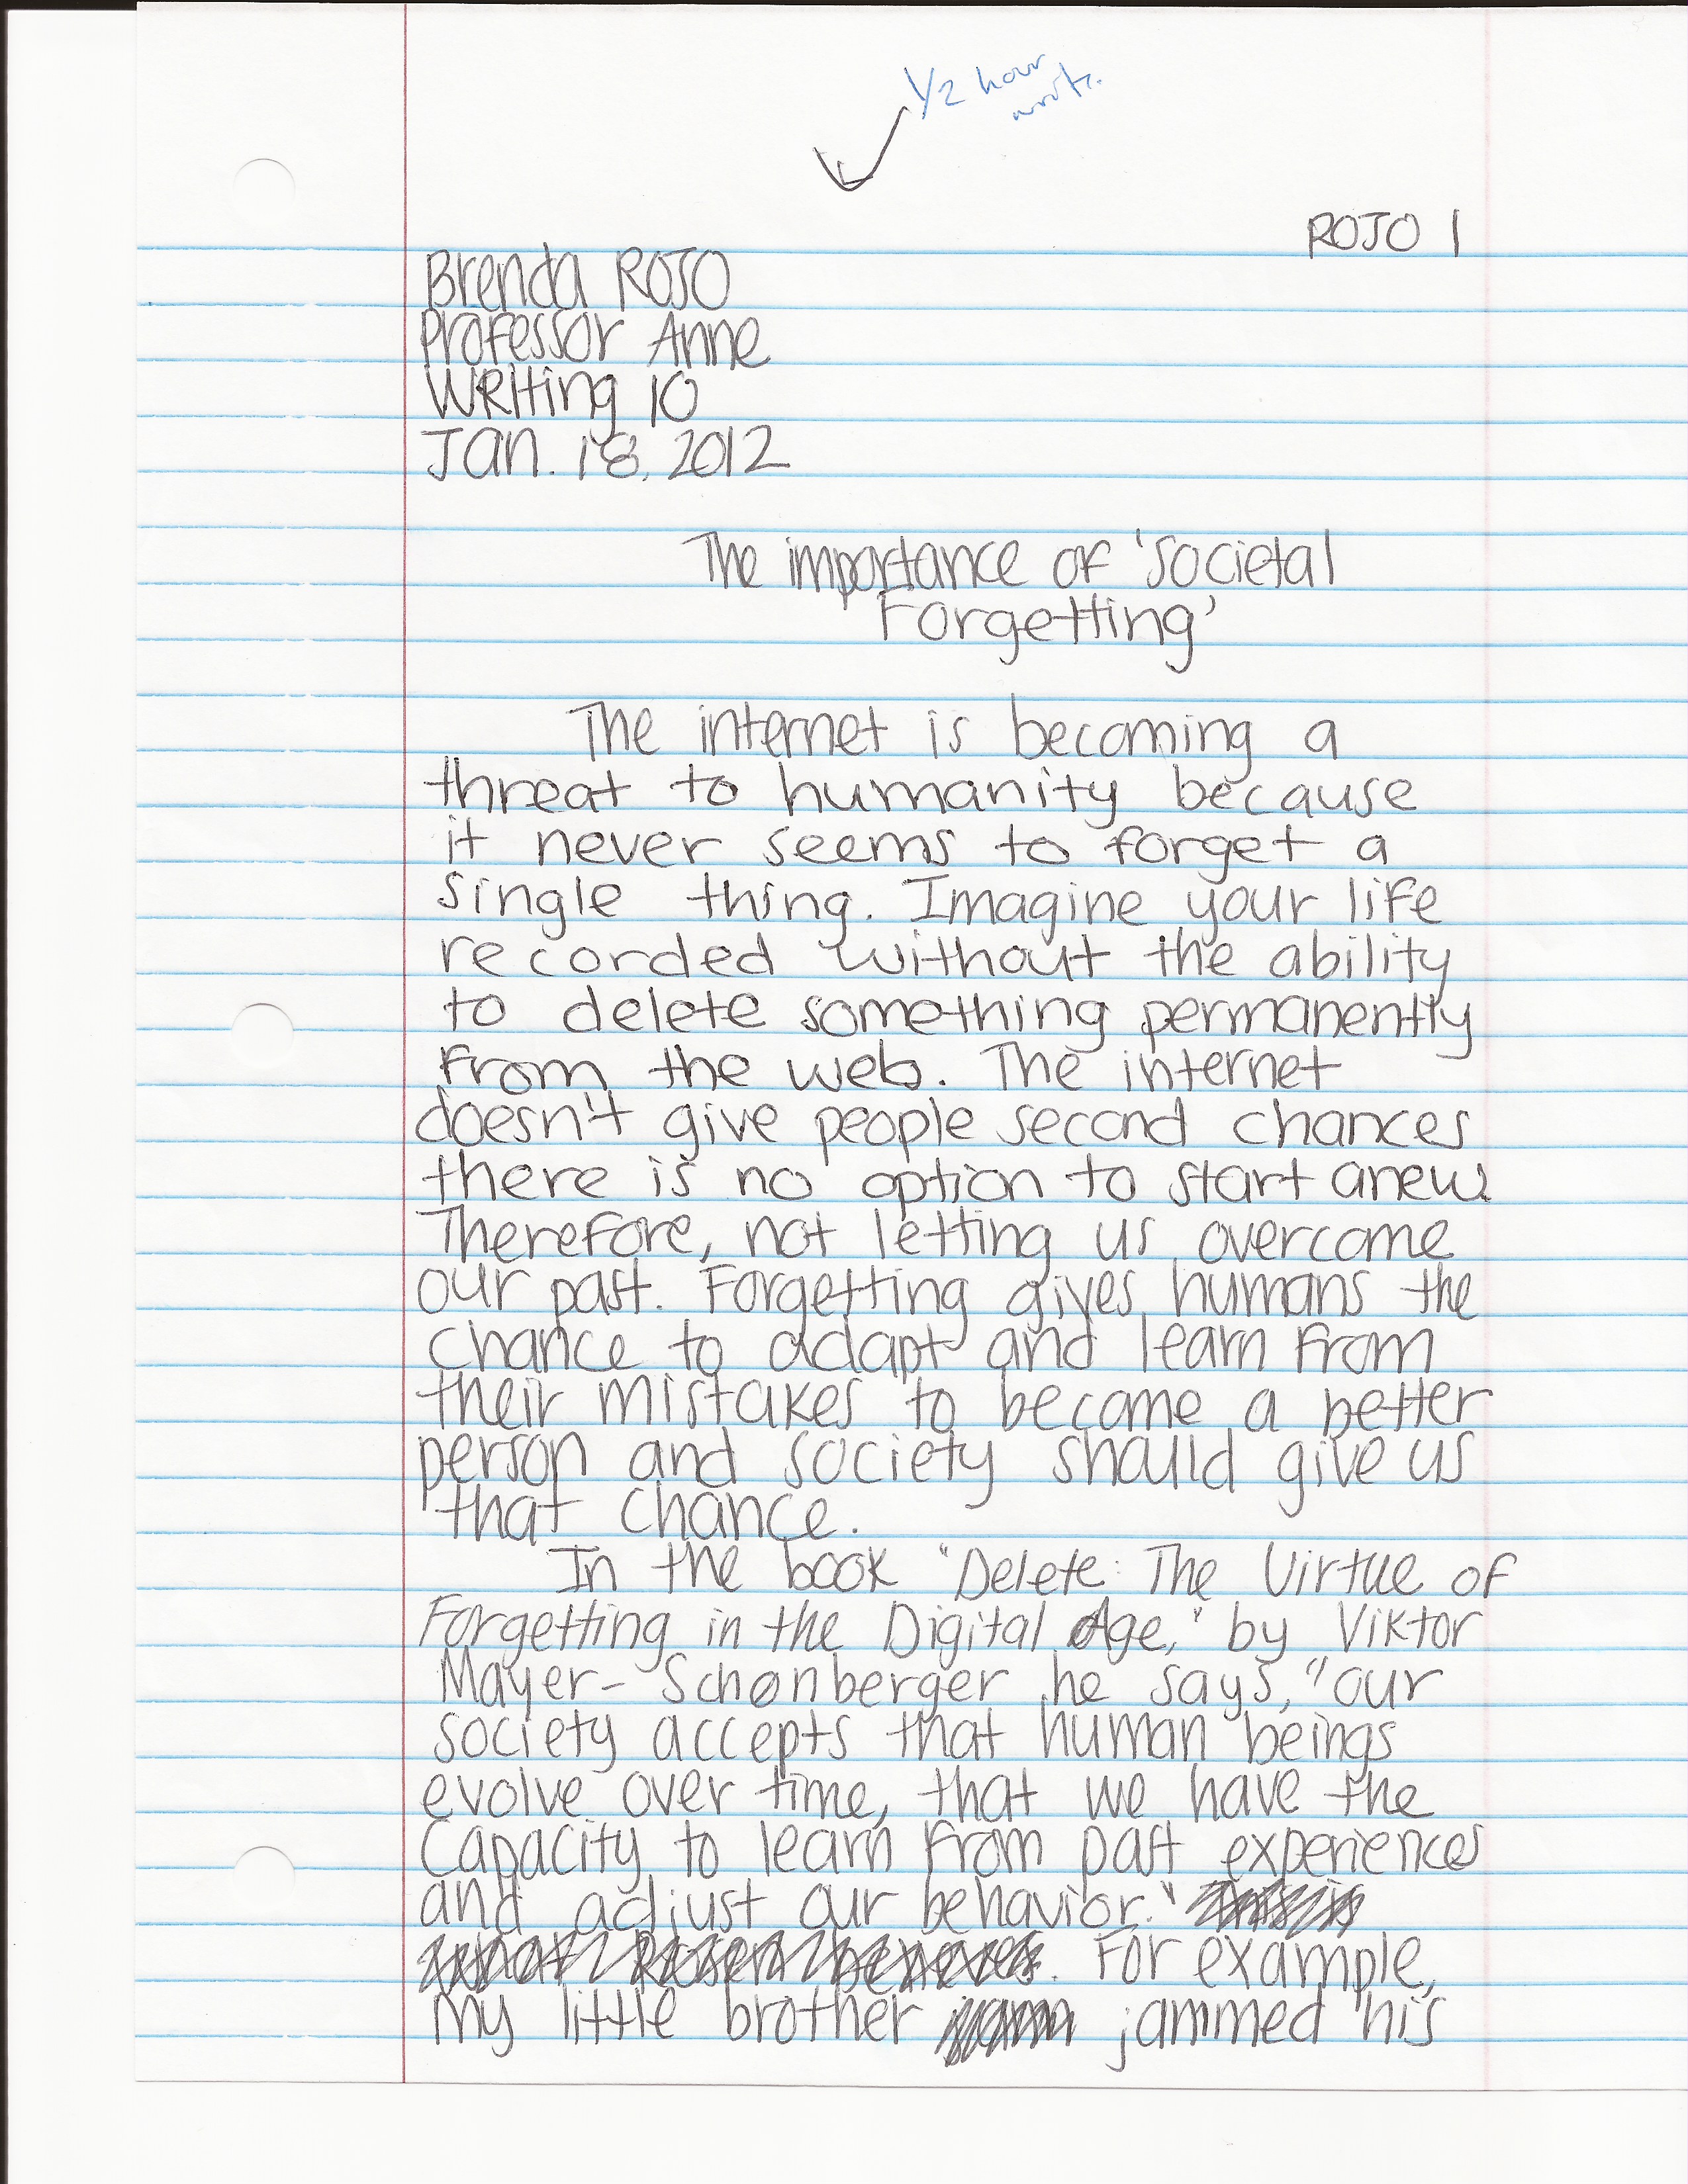 1/2 hour
ROJO 1
Brenda ROJO
Professor Anne
Writing 10
Jan. 18, 2012
The importance of 'Societal
Forgetting'
The internet is becoming a
threat to humanity because
it never seems to forget a
single thing. Imagine your life
recorded without the ability
to delete something permanently
from the web. The internet
doesn't give people second chances
there is no option to start anew.
Therefore, not letting us overcome
our past. Forgetting gives humans the
chance to adapt and learn from
their mistakes to become a better
person and society should give us
that chance.
In the book "Delete: The Virtue of
Forgetting in the Digital Age," by Viktor
Mayer-Schonberger he says, "our
society accepts that human beings
evolve over time, that we have the
capacity to learn from past experiences
and adjust our behavior."
. For example,
my little brother jammed his